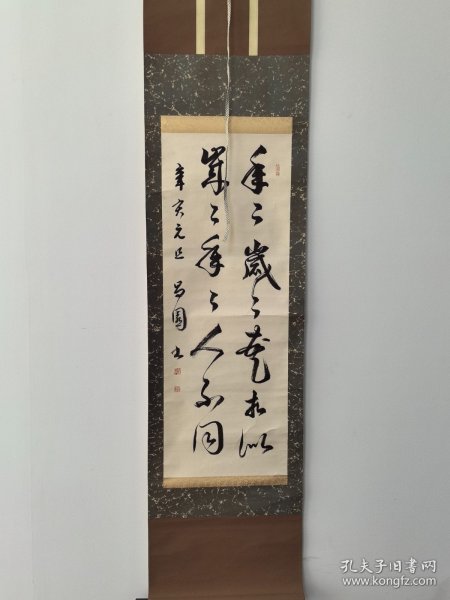 年々歳々花相似
歳々年々人不同
辛亥元旦 昌園書
孔夫子旧书网
www.kongfz.com